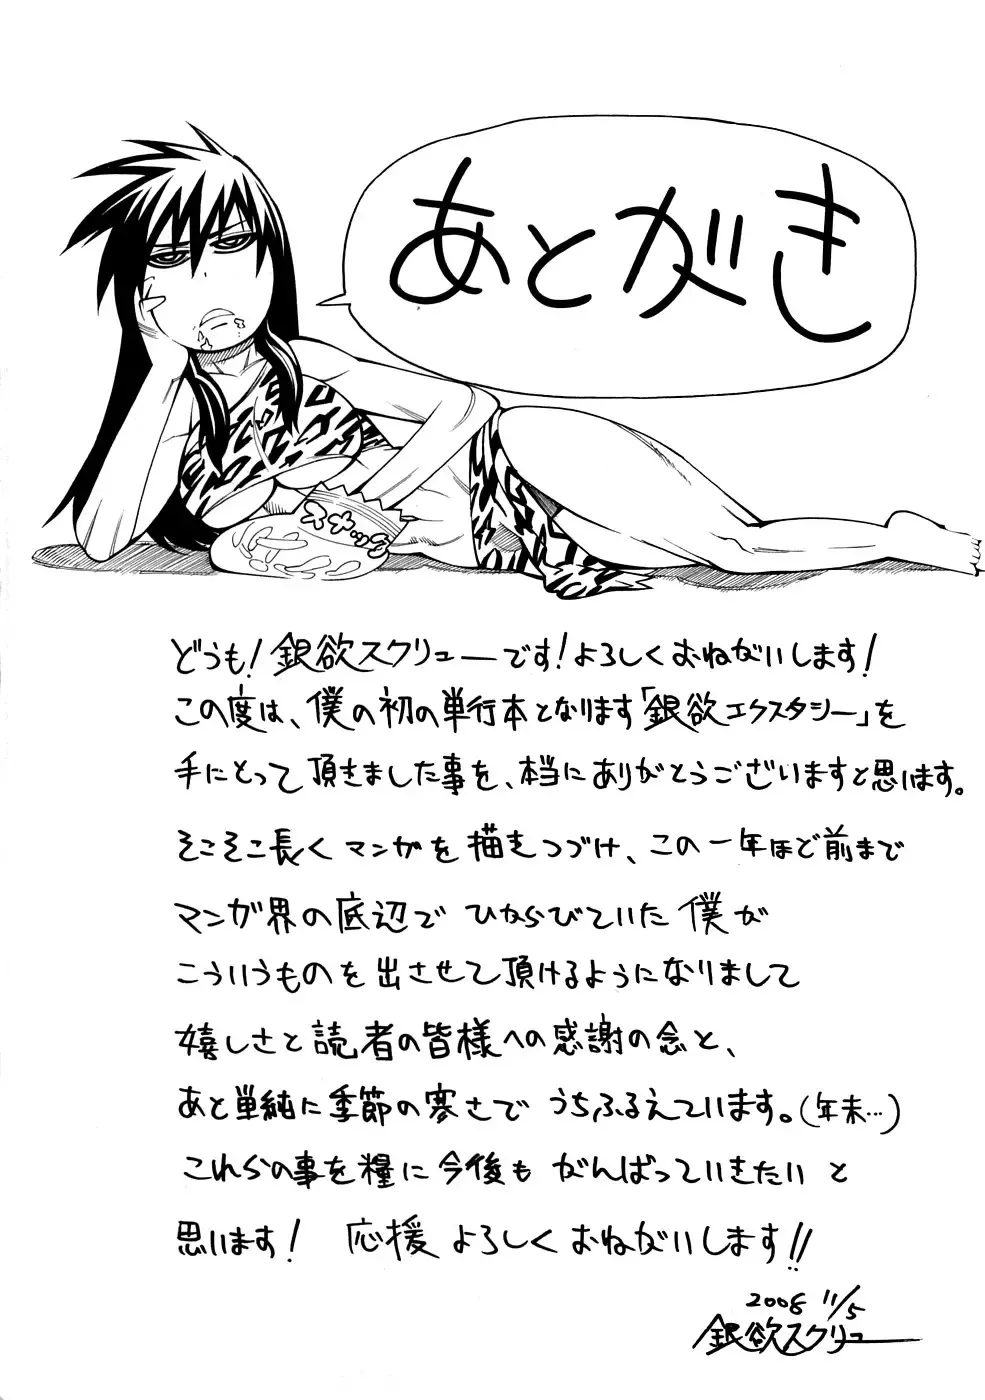 あとがき
スナック
どうも!銀欲スクリューです!よろしくおねがいします!
この度は、僕の初の単行本となります「銀欲エクスタシー」を
手にとって頂きました事を、本当にありがとうございますと思います。
そこそこ長くマンガを描きつづけ、この一年ほど前まで
マンガ界の底辺でひからびていた僕が
こういうものを出させて頂けるようになりまして
嬉しさと読者の皆様への感謝の念と、
あと単純に季節の寒さでうちふるえています。(年末…)
これらの事を糧に今後もがんばっていきたいと
思います!応援よろしくおねがいします!!
2008 11/5
銀欲スクリュー